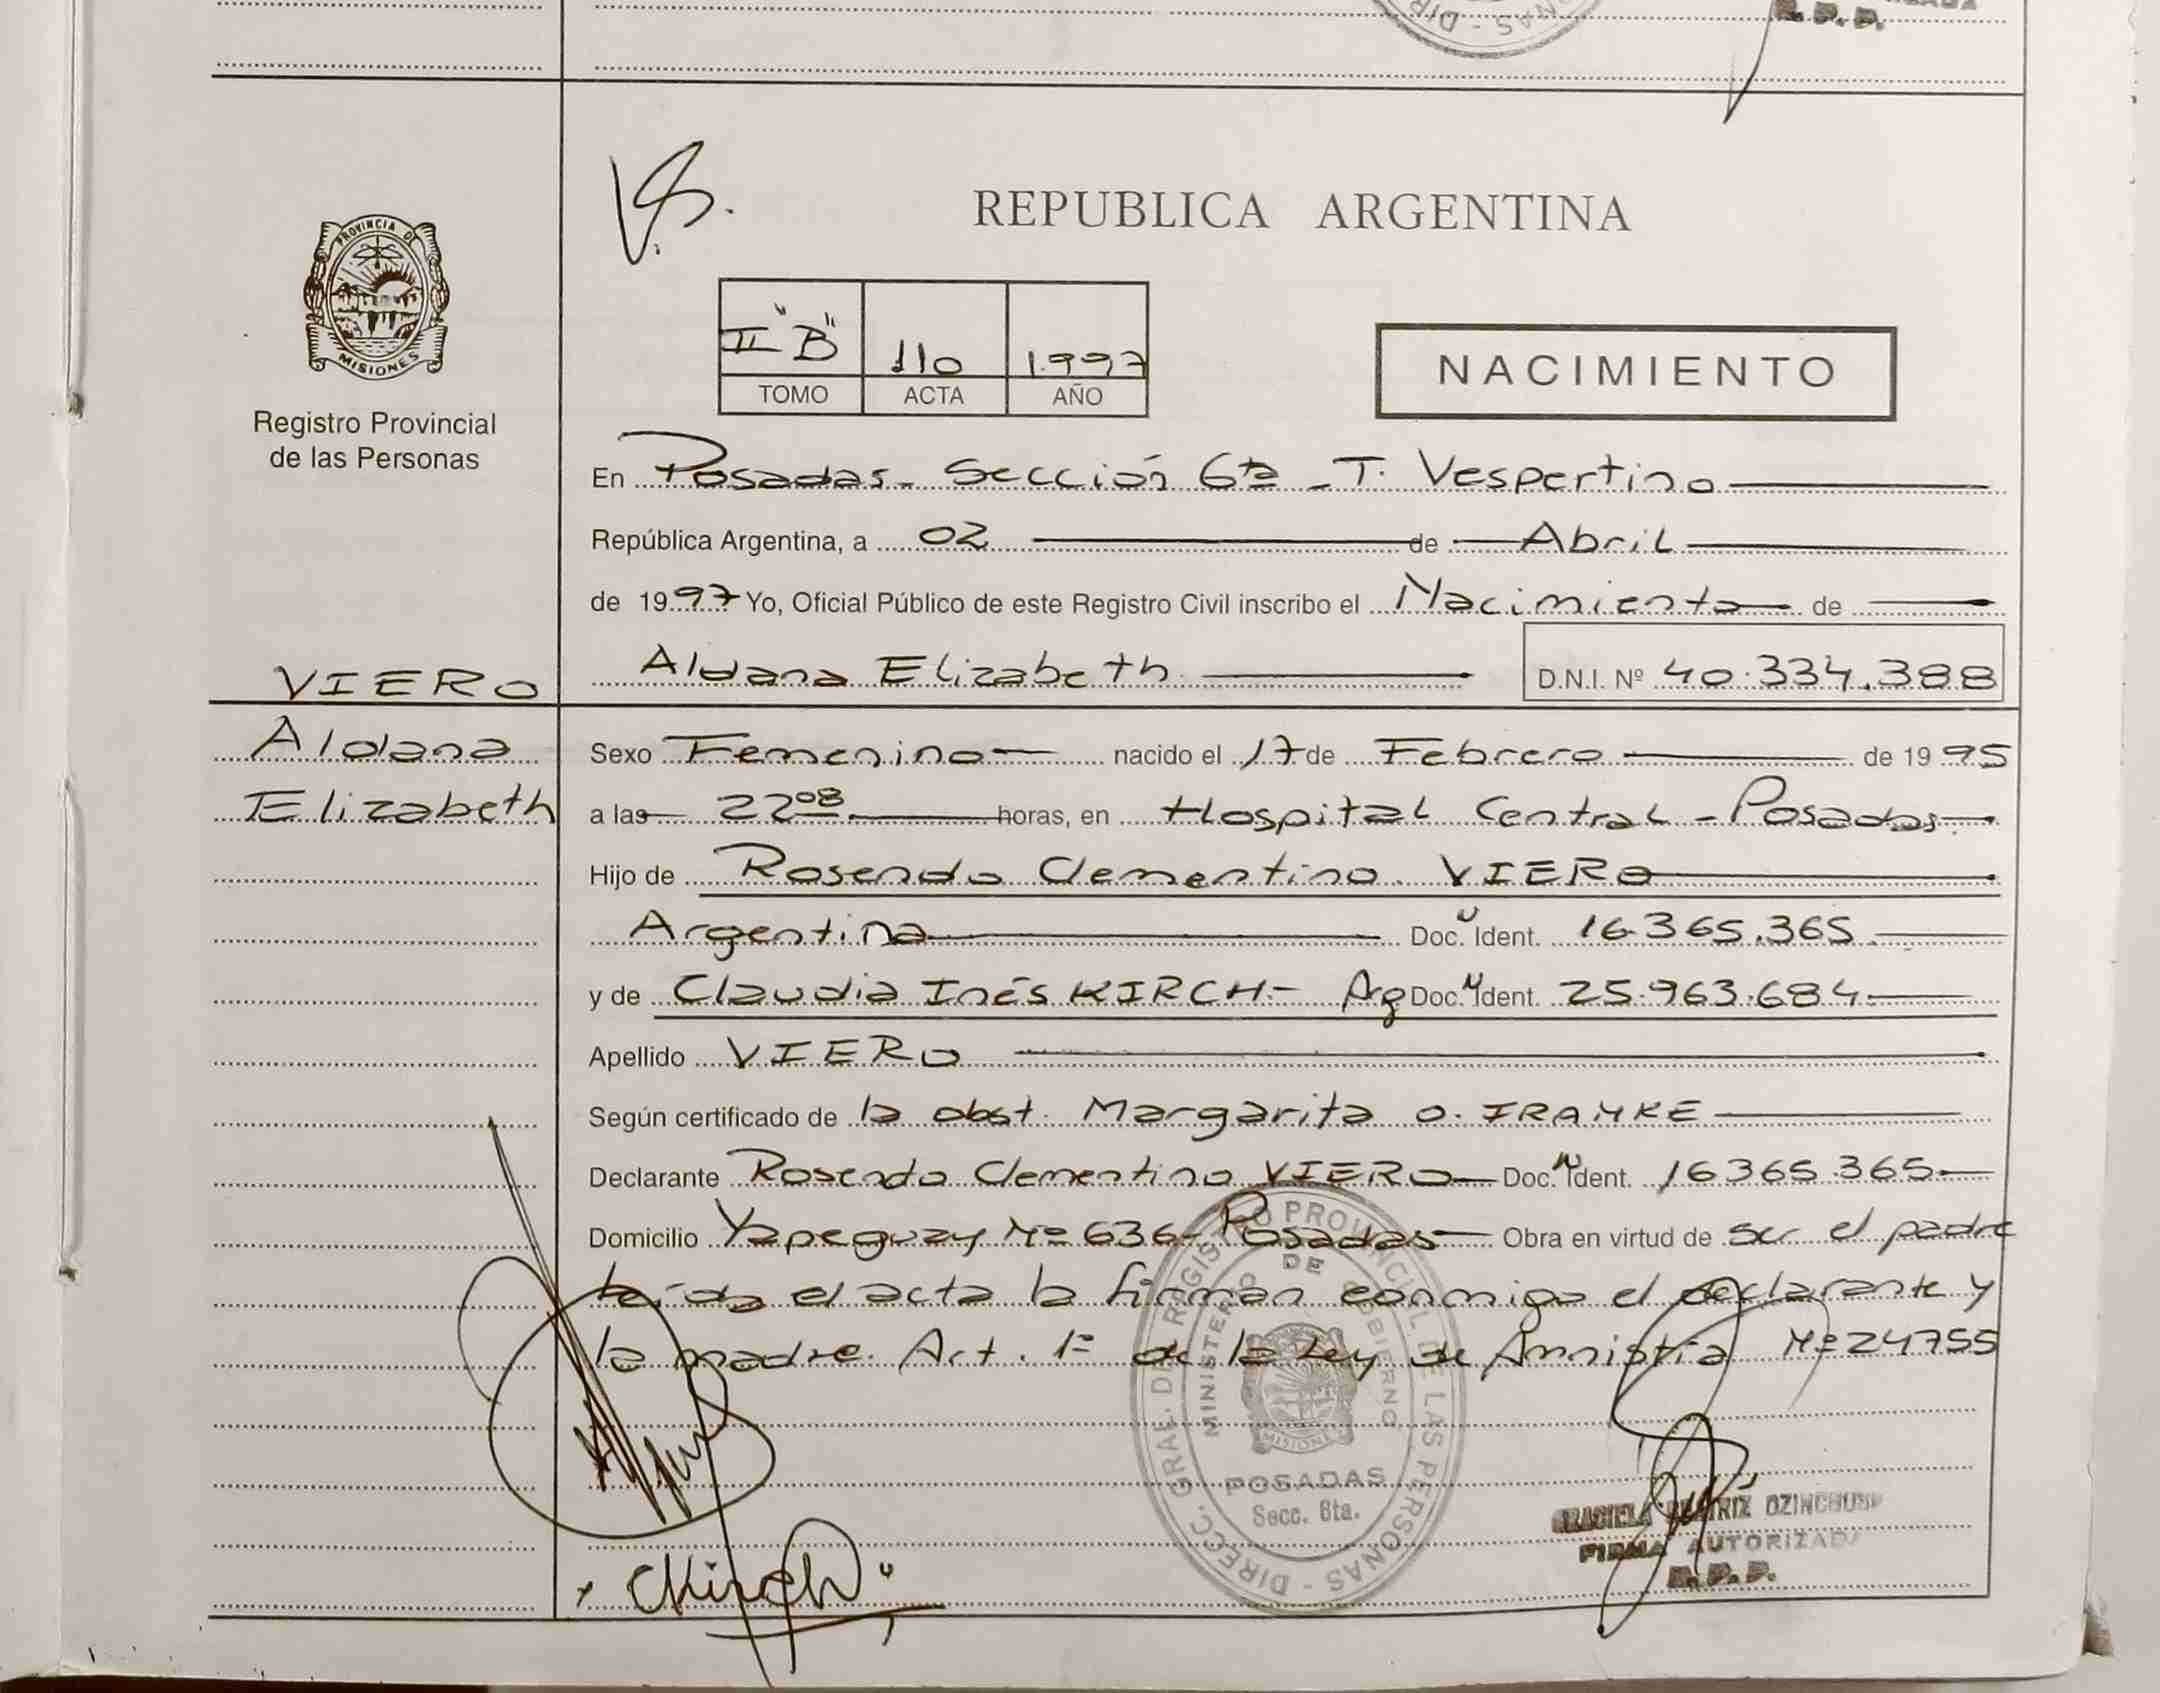 R. P. P.
DIR - SAN
PROVINCIA DE
MISIONES
Registro Provincial
de las Personas
REPUBLICA ARGENTINA
II "B" 110 1.997
TOMO ACTA AÑO
NACIMIENTO
En Posadas - Sección 6ta - T. Vespertino
República Argentina, a 02 de Abril
de 1997 Yo, Oficial Público de este Registro Civil inscribo el Nacimiento de
VIERO
Aldana Elizabeth D.N.I. Nº 40.334.388
Aldana
Elizabeth
Sexo Femenino nacido el 17 de Febrero de 1995
a las 22 08 horas, en Hospital Central - Posadas.
Hijo de Rosendo Clementino VIERO
Argentina Doc. Ident. 16.365.365
y de Claudia Inés KIRCH - Arg Doc. Ident. 25.963.684
Apellido VIERO
Según certificado de la obst. Margarita O.
Declarante Rosendo Clementino VIERO Doc. Ident. 16365.365
Domicilio Yapeguay Nº 636 - Posadas Obra en virtud de ser el padre
leída el acta la firman conmigo el declarante y
la madre. Art. 1º de la Ley de Amnistía Nº 24755
DIRECC. GRAL. DE REGISTRO PROVINCIAL DE LAS PERSONAS
MINISTERIO DE GOBIERNO
MISIONES
POSADAS
Secc. 6ta.
GRACIELA BEATRIZ
FIRMA AUTORIZADA
R. P. P.
CKirch